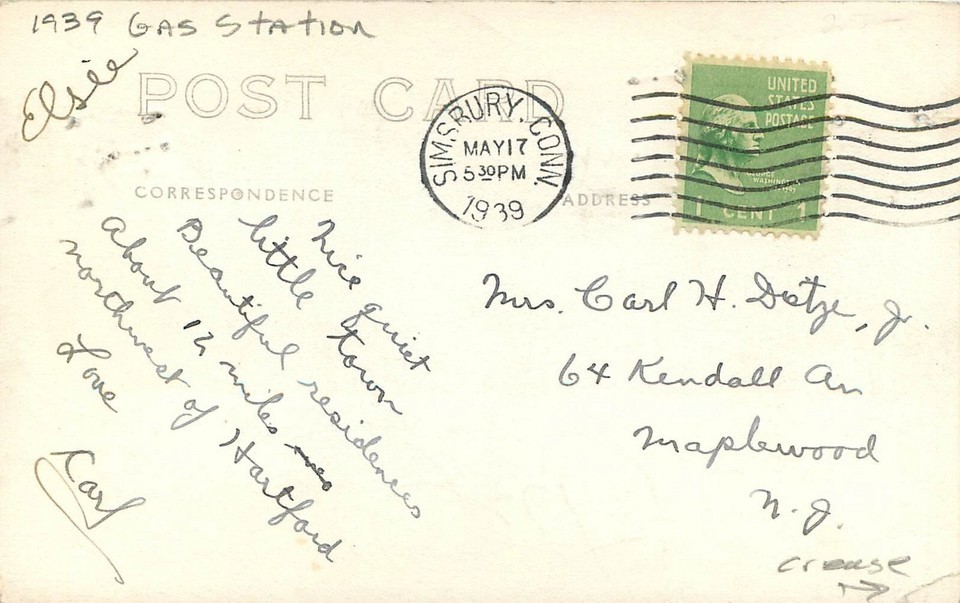 1939 GAS STATION
Elsie
POST CARD
SIMSBURY, CONN.
MAY 17
5 30 PM
1939
UNITED
STATES
POSTAGE
GEORGE
WASHINGTON
1 CENT 1
CORRESPONDENCE
ADDRESS
Nice quiet
little town
Beautiful residences
About 12 miles
northwest of Hartford
Love
Carl
Mrs. Carl H. Dietze, Jr.
64 Kendall Av
Maplewood
N. J.
crease